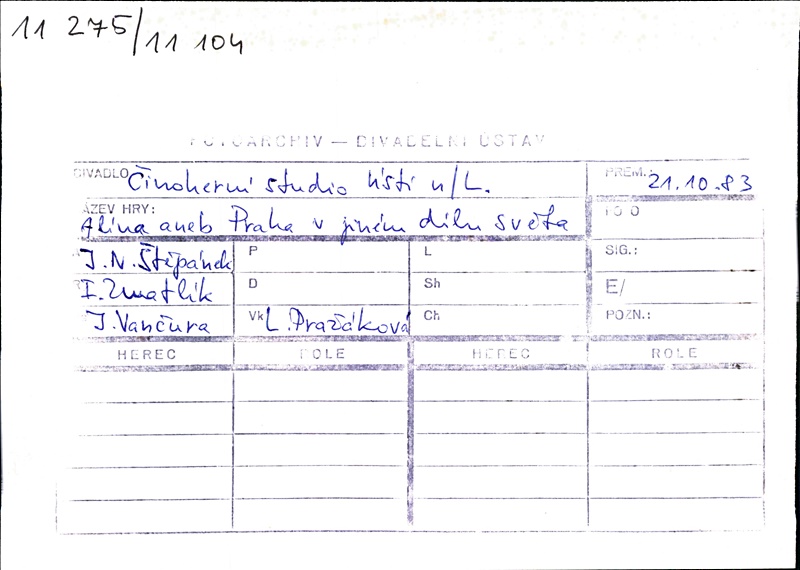 11 275/11 104
FOTOARCHIV — DIVADELNÍ ÚSTAV
DIVADLO Činoherní studio Ústí n/L. PREM.: 21.10.83
NÁZEV HRY: Alina aneb Praha v jiném dílu světa FOTO
J.N. Štěpánek P L SIG.:
I. Zmatlík D Sh E/
J. Vančura Vk L. Pražáková Ch POZN.:
HEREC ROLE HEREC ROLE